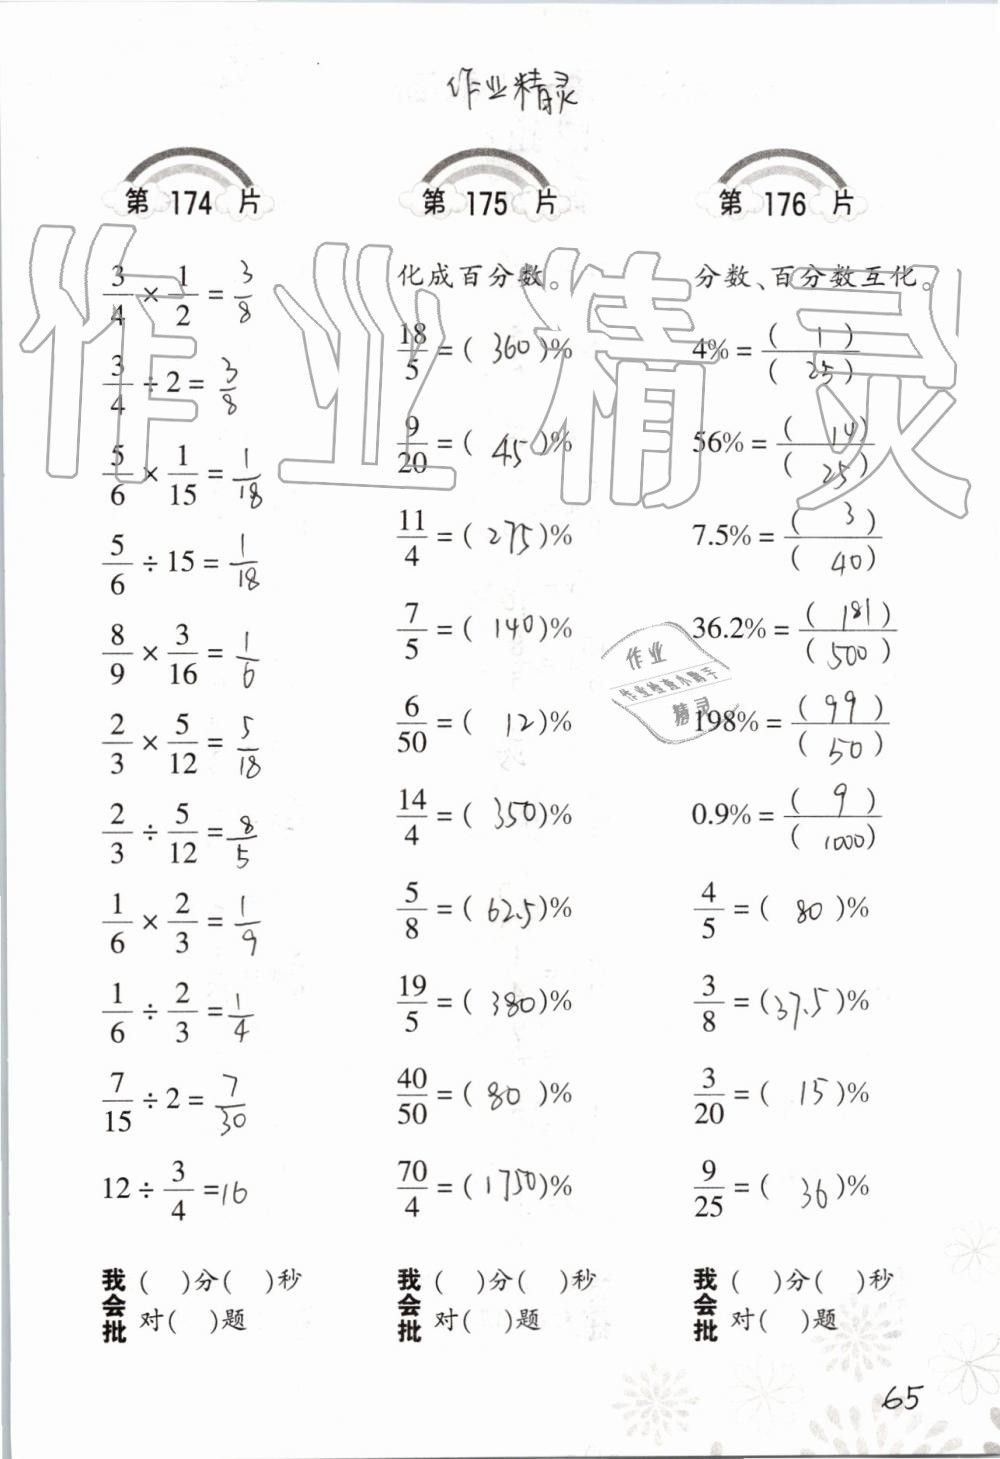 作业精灵
第 174 片
3/4 × 1/2 = 3/8
3/4 ÷ 2 = 3/8
5/6 × 1/15 = 1/18
5/6 ÷ 15 = 1/18
8/9 × 3/16 = 1/6
2/3 × 5/12 = 5/18
2/3 ÷ 5/12 = 8/5
1/6 × 2/3 = 1/9
1/6 ÷ 2/3 = 1/4
7/15 ÷ 2 = 7/30
12 ÷ 3/4 = 16
我会批
( )分( )秒
对( )题
第 175 片
化成百分数。
18/5 = ( 360 )%
9/20 = ( 45 )%
11/4 = ( 275 )%
7/5 = ( 140 )%
6/50 = ( 12 )%
14/4 = ( 350 )%
5/8 = ( 62.5 )%
19/5 = ( 380 )%
40/50 = ( 80 )%
70/4 = ( 1750 )%
我会批
( )分( )秒
对( )题
第 176 片
分数、百分数互化。
4% = ( 1 )/( 25 )
56% = ( 14 )/( 25 )
7.5% = ( 3 )/( 40 )
36.2% = ( 181 )/( 500 )
198% = ( 99 )/( 50 )
0.9% = ( 9 )/( 1000 )
4/5 = ( 80 )%
3/8 = ( 37.5 )%
3/20 = ( 15 )%
9/25 = ( 36 )%
我会批
( )分( )秒
对( )题
65
作业精灵
作业
作业检查小助手
精灵